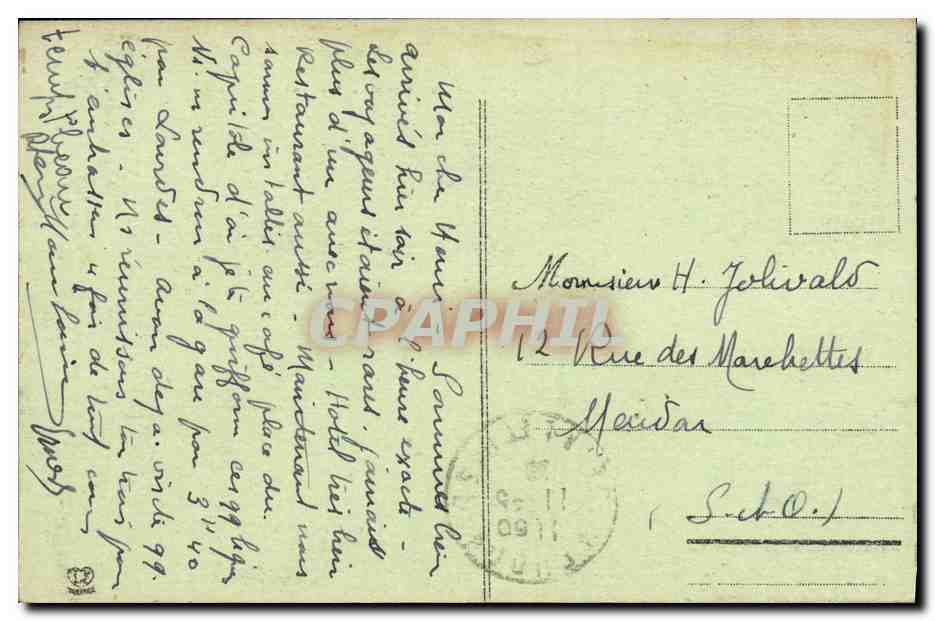 Mon cher Henri - Sommes bien
arrivés hier soir à l'heure exacte -
Les voyageurs étaient rares jamais
plus d'un avec nous - Hotel très bien
Restaurant aussi - Maintenant nous
sommes installés au café place du
Capitole d'où je te griffonne ces qq lignes
Ns ns rendrons à la gare pour 3h40
pour Lourdes - avons déjà visité qq
églises - Ns réunissons tous trois pour
t'embrasser 4 fois de tout cœur
temps beau
Monsieur H. Jolivald
12 Rue des Marebettes
Meudon
S.-et-O.
CPAPHIL